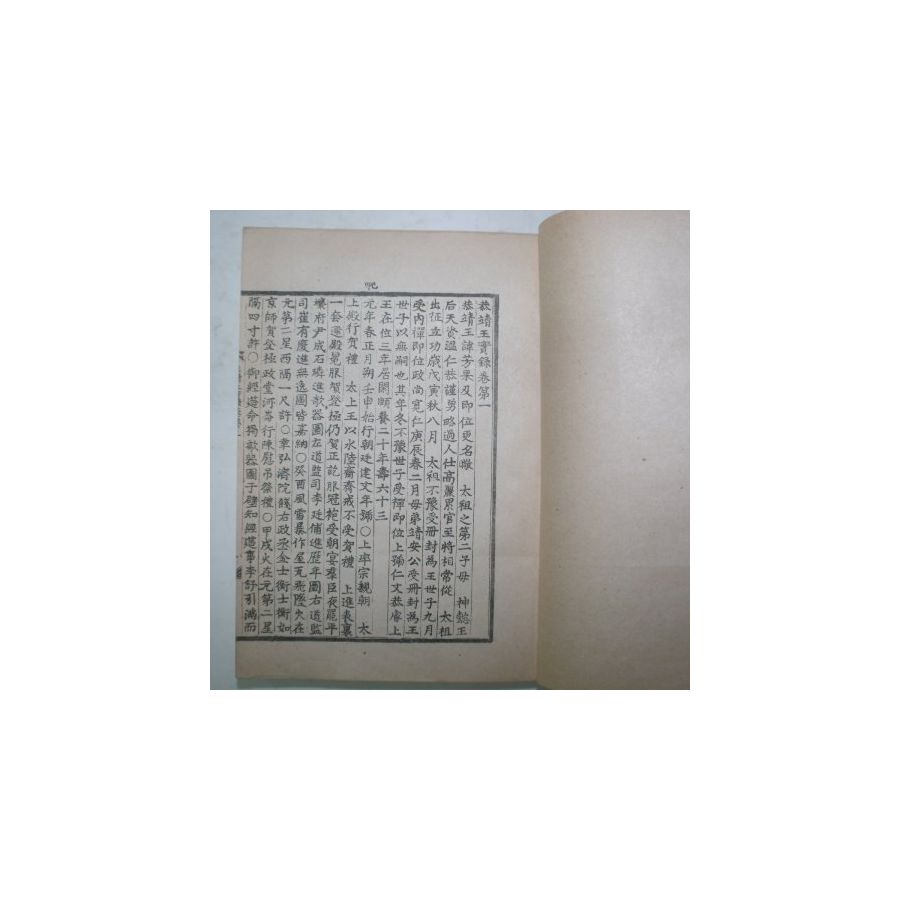 恭靖王實錄卷第一
恭靖王諱芳果及即位更名曔 太祖之第二子母 神懿王
后天資溫仁恭謹勇略過人仕高麗累官至將相常從 太祖
出征立功歲戊寅秋八月 太祖不豫受冊封爲王世子九月
受內禪即位政尙寬仁庚辰春二月母弟靖安公受冊封爲王
世子以無嗣也其年冬不豫世子受禪即位上號仁文恭睿上
王在位三年居閑頤養二十年壽六十三
元年春正月朔壬申始行朝廷建文年號○上率宗親朝 太
上殿行賀禮 太上王以水陸齋齊戒不受賀禮 上進表裏
一套還殿冕服賀登極仍賀正訖服冠袍受朝宴羣臣夜罷平
壤府尹成石璘進欹器圖左道監司李廷俌進歷年圖右道監
司崔有慶進無逸圖皆嘉納○癸酉風雷暴作屋瓦飛墜火在
元第二星西隅一尺許○幸弘濟院餞右政丞金士衡士衡如
京師賀登極政堂河崙行陳慰吊祭禮○甲戌火在元第二星
隅四寸許○御經筵命獨欹器圖于壁知經筵事李舒引滿而